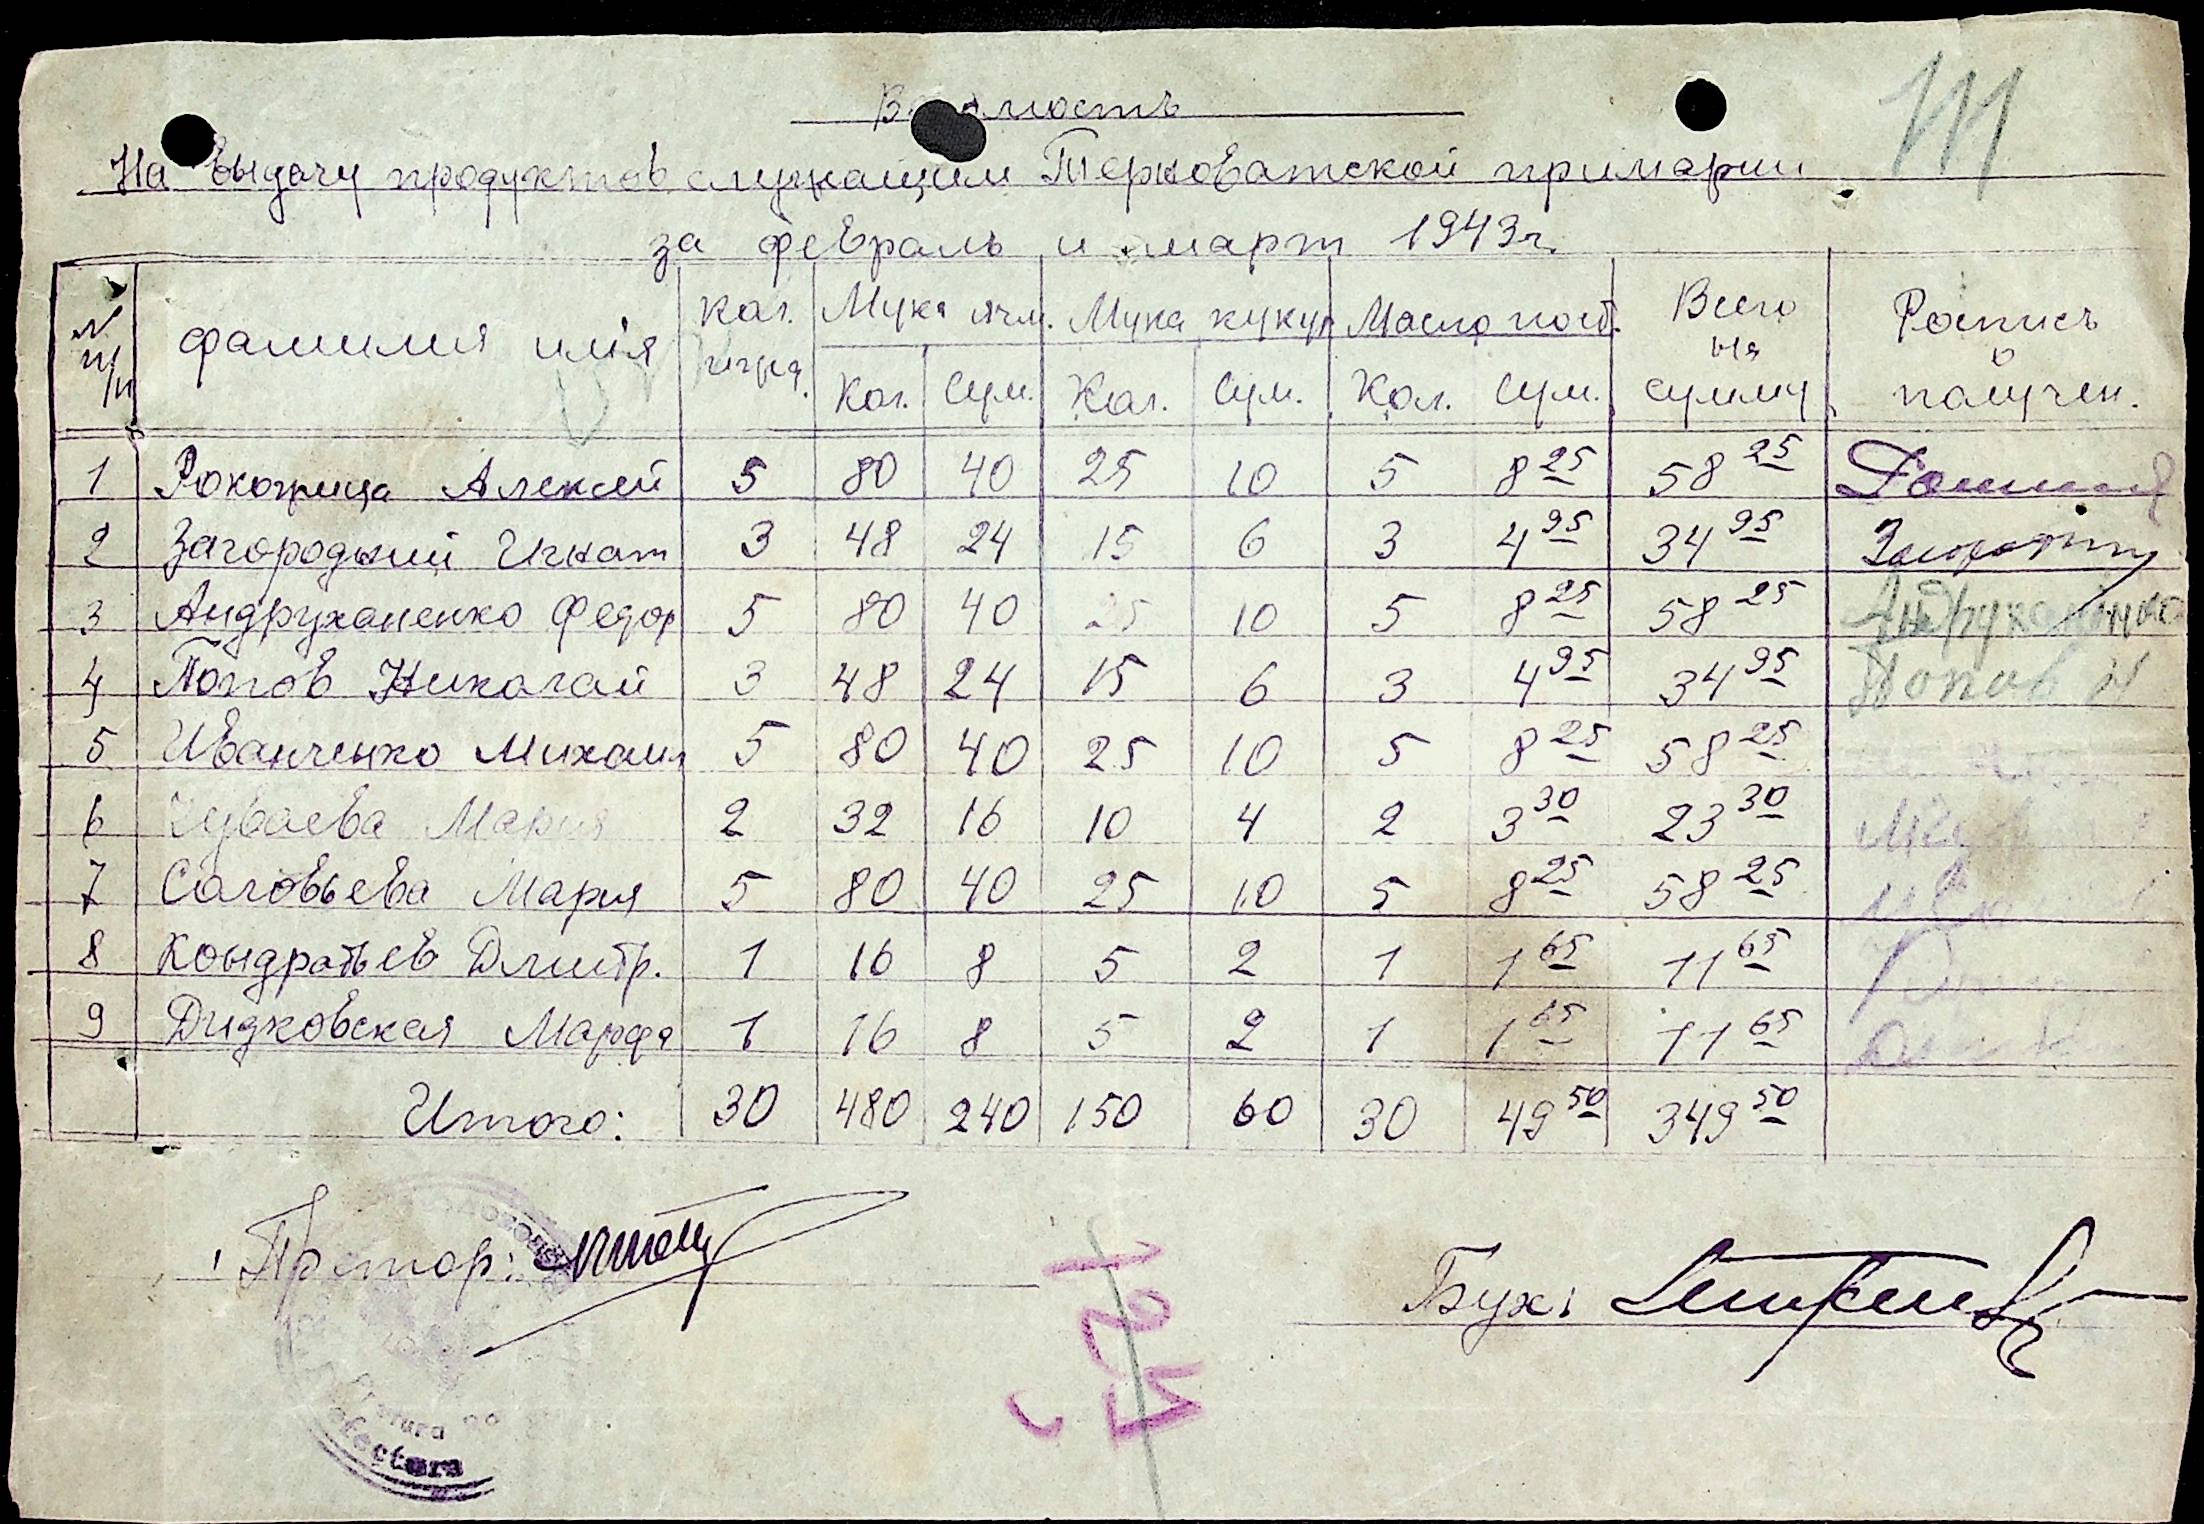 Ведомость
На выдачу продуктов служащим Терноватской примарии
за февраль и март 1943г.
111
№ п/п фамилия имя Кол. Мука ячм. Мука кукур Масло пост. Всего на сумму Роспись о получен.
Кол. Сум. Кол. Сум. Кол. Сум.
1 Алексей 5 80 40 25 10 5 8 25 58 25
2 Загородний Игнат 3 48 24 15 6 3 4 95 34 95
3 Андруханенко Федор 5 80 40 25 10 5 8 25 58 25 Андруханенко
4 Попов Николай 3 48 24 15 6 3 4 95 34 95 Попов Н
5 Иванченко Михаил 5 80 40 25 10 5 8 25 58 25
6 Чуваева Мария 2 32 16 10 4 2 3 30 23 30
7 Соловьева Мария 5 80 40 25 10 5 8 25 58 25
8 Кондратьев Дмитр. 1 16 8 5 2 1 1 65 11 65
9 Дидковская Марфа 1 16 8 5 2 1 1 65 11 65
Итого: 30 480 240 150 60 30 49 50 349 50
Претор:
Бух: